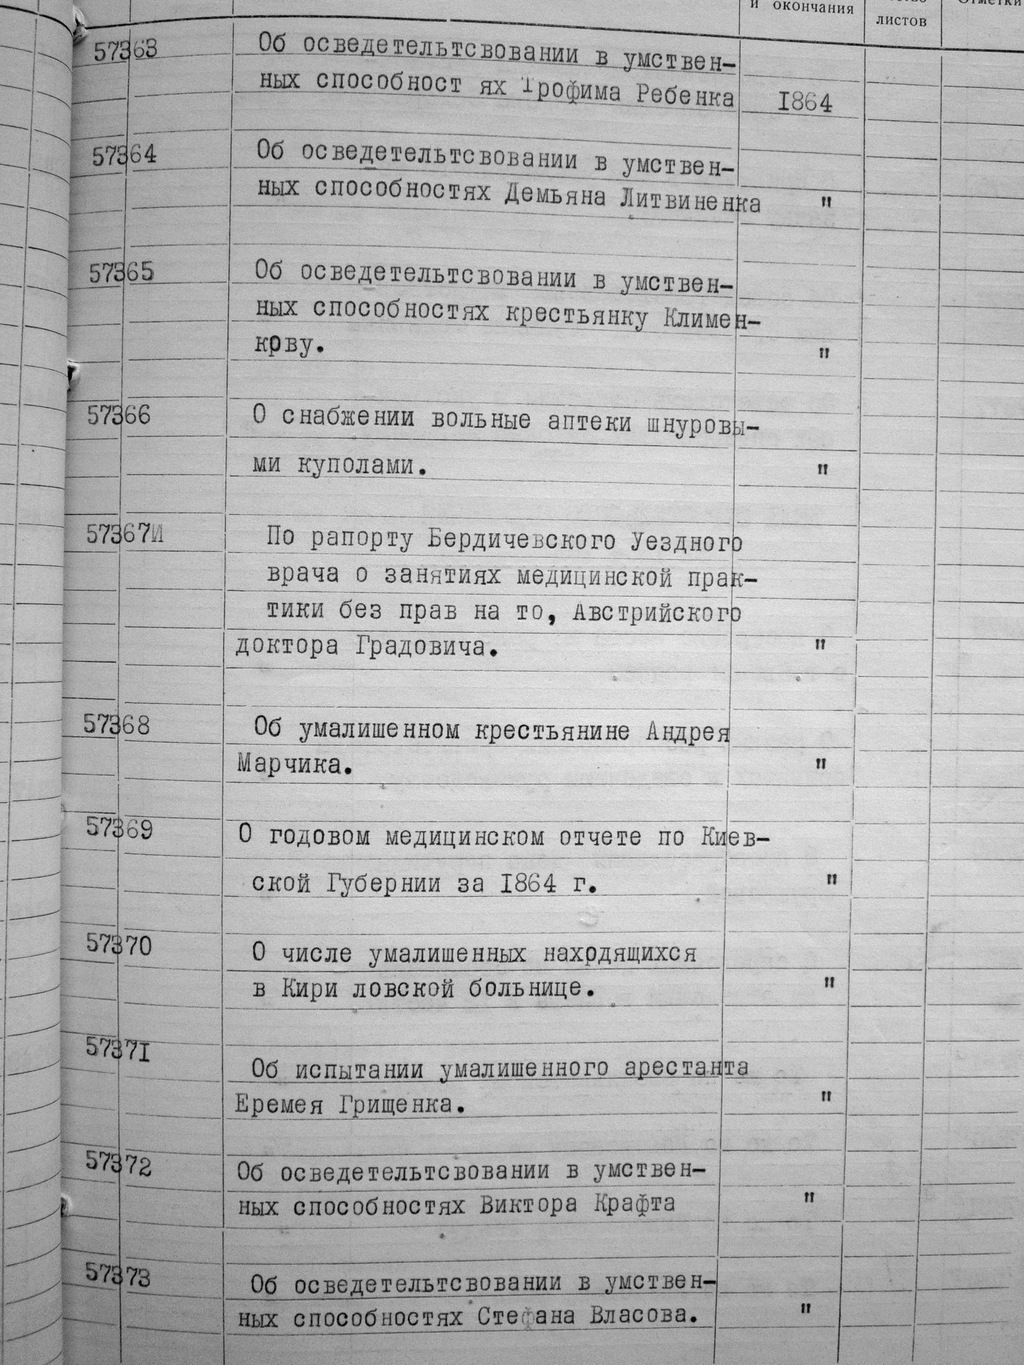 и окончания
листов
57363 Об осведетельтсвовании в умствен-
ных способност ях Трофима Ребенка 1864
57364 Об осведетельтсвовании в умствен-
ных способностях Демьяна Литвиненка "
57365 Об осведетельтсвовании в умствен-
ных способностях крестьянку Климен-
кову. "
57366 О снабжении вольные аптеки шнуровы-
ми куполами. "
57367И По рапорту Бердичевского Уездного
врача о занятиях медицинской прак-
тики без прав на то, Австрийского
доктора Градовича. "
57368 Об умалишенном крестьянине Андрея
Марчика. "
57369 О годовом медицинском отчете по Киев-
ской Губернии за 1864 г. "
57370 О числе умалишенных находящихся
в Кири ловской больнице. "
57371
Об испытании умалишенного арестанта
Еремея Грищенка. "
57372 Об осведетельтсвовании в умствен-
ных способностях Виктора Крафта "
57373 Об осведетельтсвовании в умствен-
ных способностях Стефана Власова. "